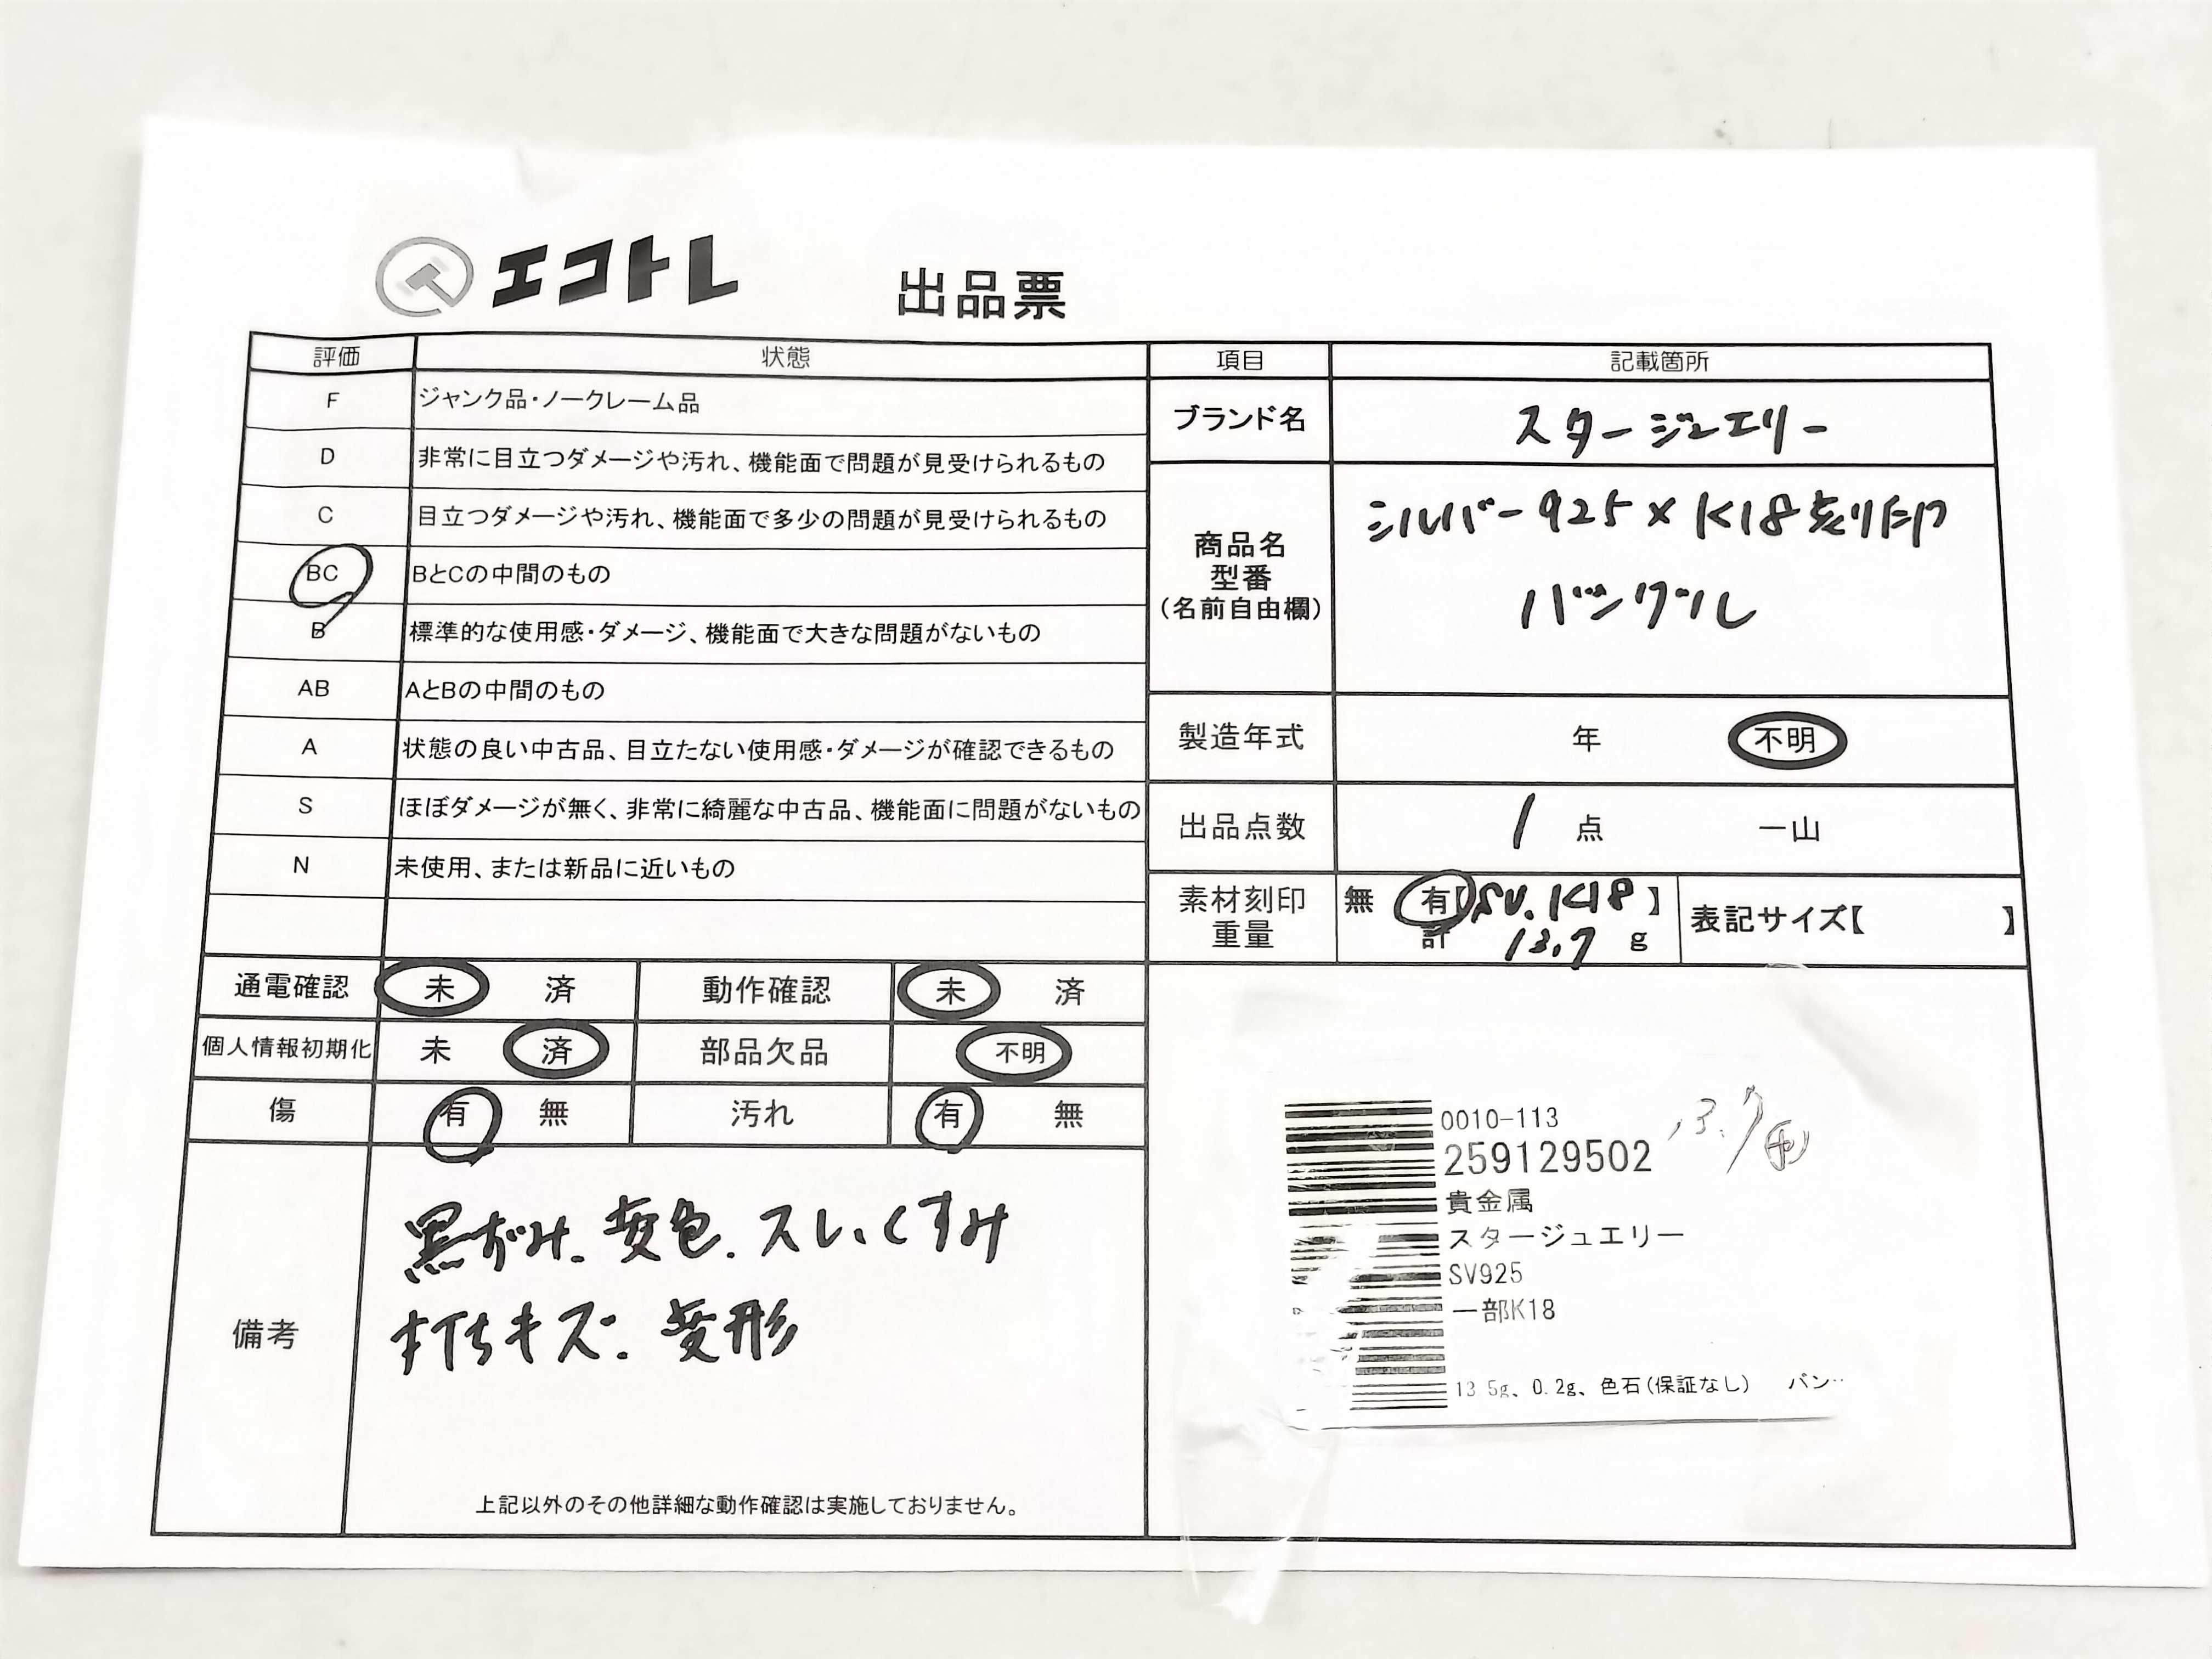 エコトレ 出品票
評価 状態
F ジャンク品・ノークレーム品
D 非常に目立つダメージや汚れ、機能面で問題が見受けられるもの
C 目立つダメージや汚れ、機能面で多少の問題が見受けられるもの
BC BとCの中間のもの
B 標準的な使用感・ダメージ、機能面で大きな問題がないもの
AB AとBの中間のもの
A 状態の良い中古品、目立たない使用感・ダメージが確認できるもの
S ほぼダメージが無く、非常に綺麗な中古品、機能面に問題がないもの
N 未使用、または新品に近いもの
通電確認 未 済 動作確認 未 済
個人情報初期化 未 済 部品欠品 不明
傷 有 無 汚れ 有 無
備考
黒ずみ、変色、スレ、くすみ
打ちキズ、変形
上記以外のその他詳細な動作確認は実施しておりません。
項目 記載箇所
ブランド名 スタージュエリー
商品名
型番
(名前自由欄)
シルバー925×K18刻印
バングル
製造年式 年 不明
出品点数 1 点 一山
素材刻印 無 有【SV.K18】
重量 計 13.7 g
表記サイズ【 】
0010-113
259129502
13.7
貴金属
スタージュエリー
SV925
一部K18
13.5g、0.2g、色石(保証なし) バン‥